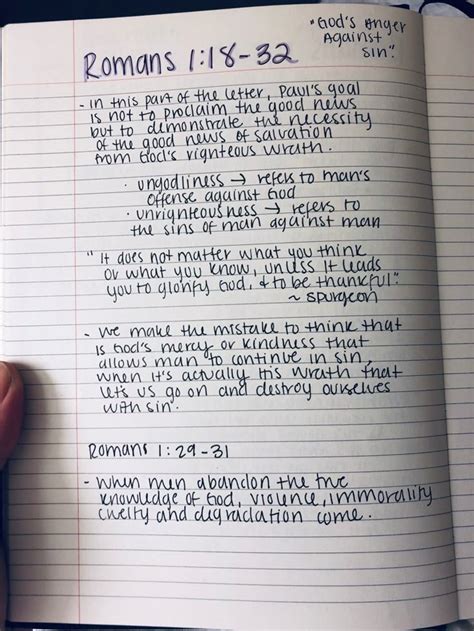 "God's Anger
Against
Sin".
Romans 1:18-32
- in this part of the letter, Paul's goal
is not to proclaim the good news
but to demonstrate the necessity
of the good news of salvation
from God's righteous wrath.
· ungodliness → refers to man's
offense against God
· unrighteousness → refers to
the sins of man against man
"It does not matter what you think
or what you know, unless it leads
you to glorify God, & to be thankful".
~ Spurgeon
- We make the mistake to think that
is God's mercy or kindness that
allows man to continue in sin,
when it's actually His wrath that
lets us go on and destroy ourselves
with sin.
Romans 1:29-31
- When men abandon the true
knowledge of God, violence, immorality
cruelty and degradation come.